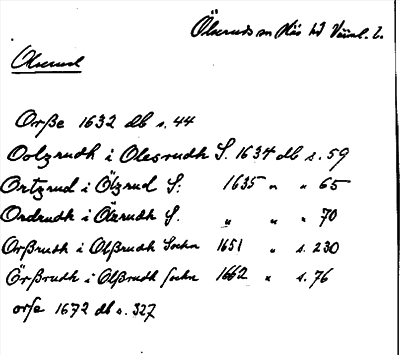 Ölseruds sn Näs hd Värml. l.
Olserud
Orße 1632 db s. 44
Oolzrudh i Olesrudh S. 1634 db s. 59
Ortzrud i Ölzrud S: 1635 " " 65
Ordrudh i Ölzrudh S. " " " 70
Orßrudh i Olßrudh Sochn 1651 " s. 230
Örßrudh i Olßrudh sochn 1662 " s. 76
orse 1672 db s. 327